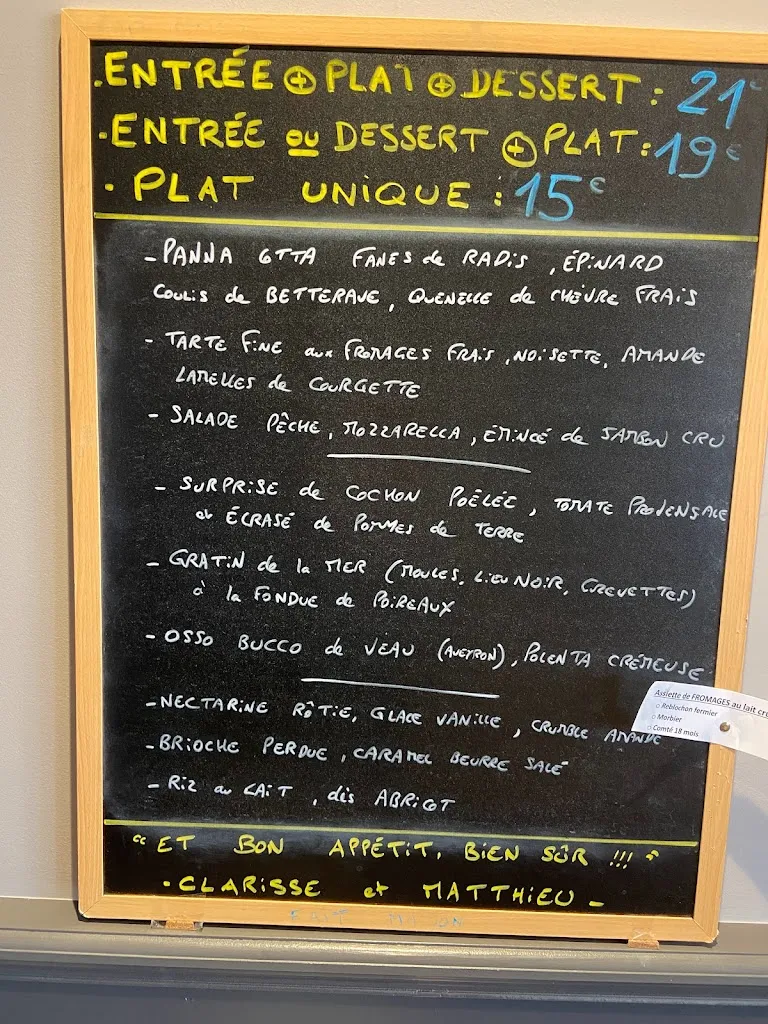 . ENTRÉE + PLAT + DESSERT : 21€
- ENTRÉE ou DESSERT + PLAT : 19€
. PLAT UNIQUE : 15€
- PANNA COTTA FANES de RADIS , ÉPINARD
COULIS de BETTERAVE , QUENELLE de CHÈVRE FRAIS
- TARTE FINE aux FROMAGES FRAIS , NOISETTE, AMANDE
LAMELLES de COURGETTE
- SALADE PÊCHE , MOZZARELLA , ÉMINCÉ de JAMBON CRU
- SURPRISE de COCHON POÊLÉE , TOMATE PROVENSALE
et ÉCRASÉ de POMMES de TERRE
- GRATIN de la MER (MOULES, LIEU NOIR, CREVETTES)
à la FONDUE de POIREAUX
- OSSO BUCCO de VEAU (AVEYRON) , POLENTA CRÉMEUSE
- NECTARINE RÔTIE, GLACE VANILLE , CRUMBLE AMANDE
Assiette de FROMAGES au lait cru
○ Reblochon fermier
○ Morbier
○ Comté 18 mois
- BRIOCHE PERDUE , CARAMEL BEURRE SALÉ
- RIZ au LAIT , dés ABRICOT
" ET BON APPÉTIT, BIEN SÛR !!! "
. CLARISSE et MATTHIEU -